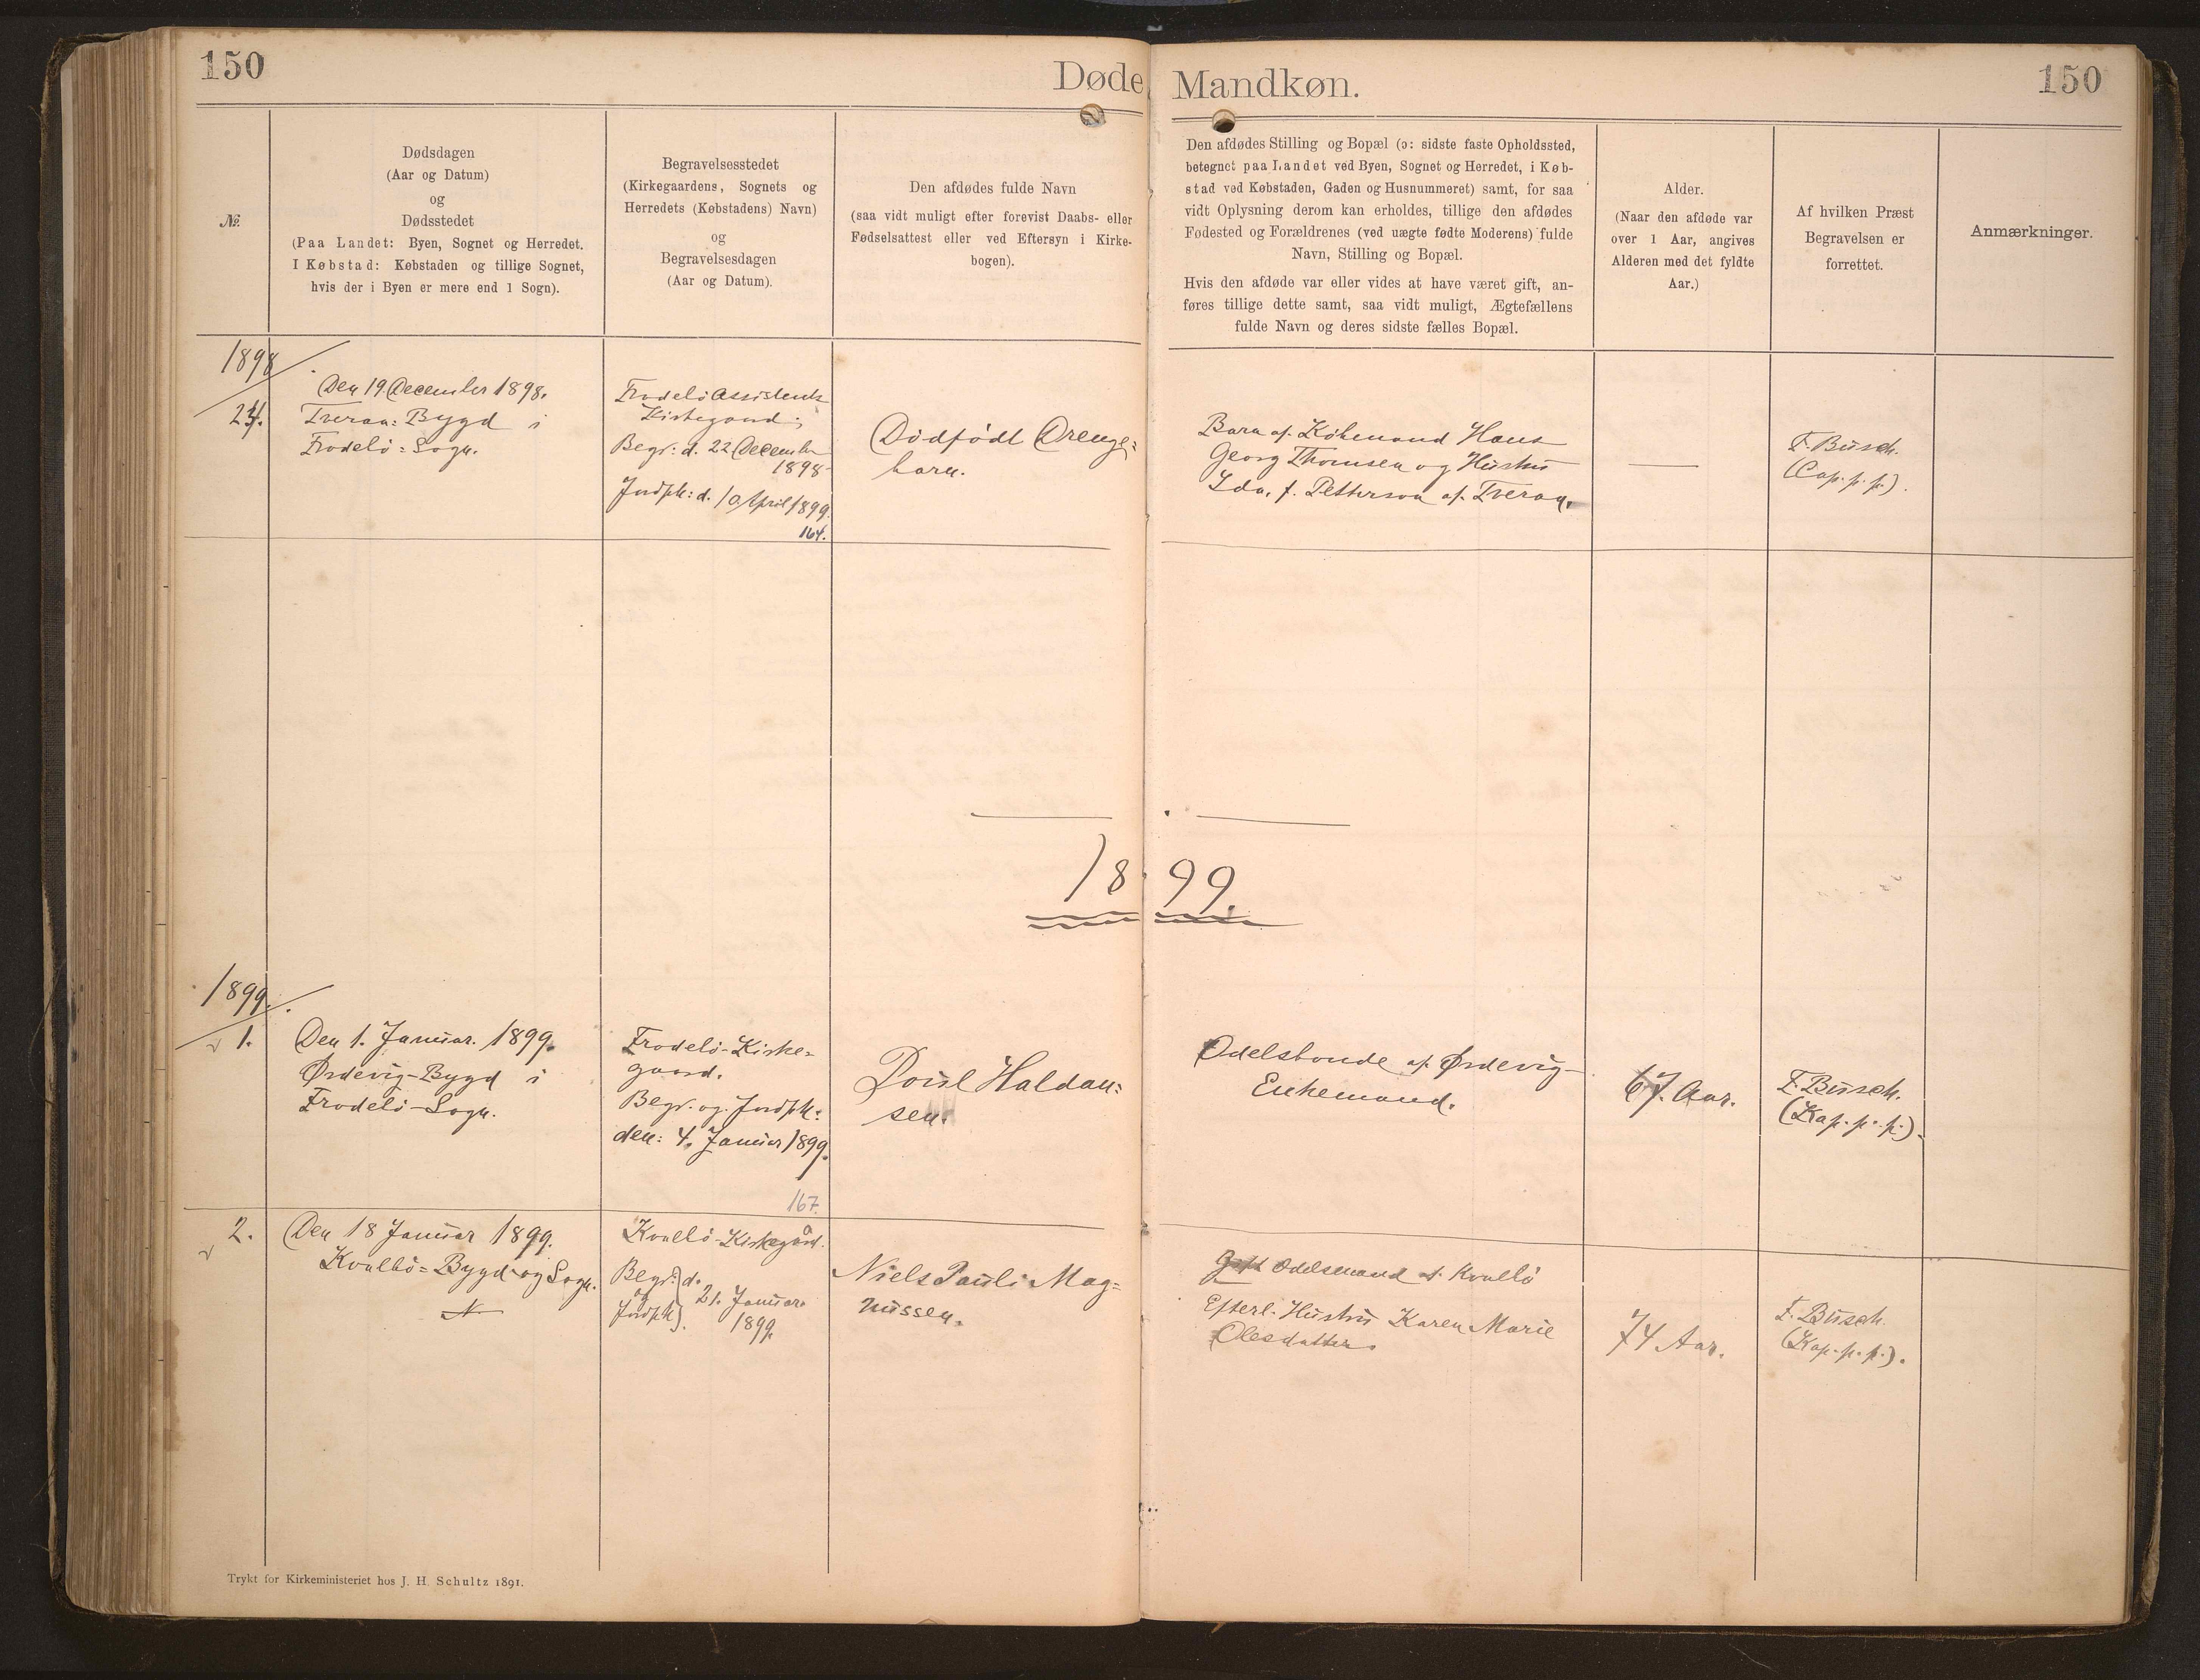 150
Døde Mandkøn.
150
№
Dødsdagen
(Aar og Datum)
og
Dødsstedet
(Paa Landet: Byen, Sognet og Herredet.
I Købstad: Købstaden og tillige Sognet,
hvis der i Byen er mere end 1 Sogn).
Begravelsesstedet
(Kirkegaardens, Sognets og
Herredets (Købstadens) Navn)
og
Begravelsesdagen
(Aar og Datum).
Den afdødes fulde Navn
(saa vidt muligt efter forevist Daabs- eller
Fødselsattest eller ved Eftersyn i Kirke-
bogen).
Den afdødes Stilling og Bopæl (ɔ: sidste faste Opholdssted,
betegnet paa Landet ved Byen, Sognet og Herredet, i Køb-
stad ved Købstaden, Gaden og Husnummeret) samt, for saa
vidt Oplysning derom kan erholdes, tillige den afdødes
Fødested og Forældrenes (ved uægte fødte Moderens) fulde
Navn, Stilling og Bopæl.
Hvis den afdøde var eller vides at have været gift, an-
føres tillige dette samt, saa vidt muligt, Ægtefællens
fulde Navn og deres sidste fælles Bopæl.
Alder.
(Naar den afdøde var
over 1 Aar, angives
Alderen med det fyldte
Aar.)
Af hvilken Præst
Begravelsen er
forrettet.
Anmærkninger.
1898
24.
Den 19 December 1898.
Tveraa: Bygd i
Frodebö: Sogn.
Frodebö Assistents
Kirkegaard;
Begr: d. 22 December
1898
Jordpk: d. 10 April 1899.
164.
Dödfödt Drenge:
barn.
Barn af Köbmand Hans
Georg Thomsen og Hustru
Ida, f. Petterson af Tveraa.
F. Busch.
(Cap. p. p.).
1899.
1899.
1.
Den 1. Januar. 1899.
Ørdevig-Bygd i
Frodebö-Sogn.
Frodebö-Kirke-
gaard.
Begr. og Jordpk:
den: 4. Januar 1899.
167.
Poul Haldan:
sen.
Odelsbonde af Ørdevig
Enkemand.
67. Aar.
F. Busch.
(Kap. p. p.).
2.
Den 18 Januar 1899.
Kvalbö= Bygd og Sogn.
Kvalbö-Kirkegård.
Begr:
og
Jordpk
d.
21. Januar
1899.
Niels Pauli Mag=
nussen.
Gift Odelsmand af Kvalbö
Efterl. Hustru Karen Marie
Olesdatter.
74 Aar.
F. Busch.
(Kap. p. p.).
Trykt for Kirkeministeriet hos J. H. Schultz 1891.